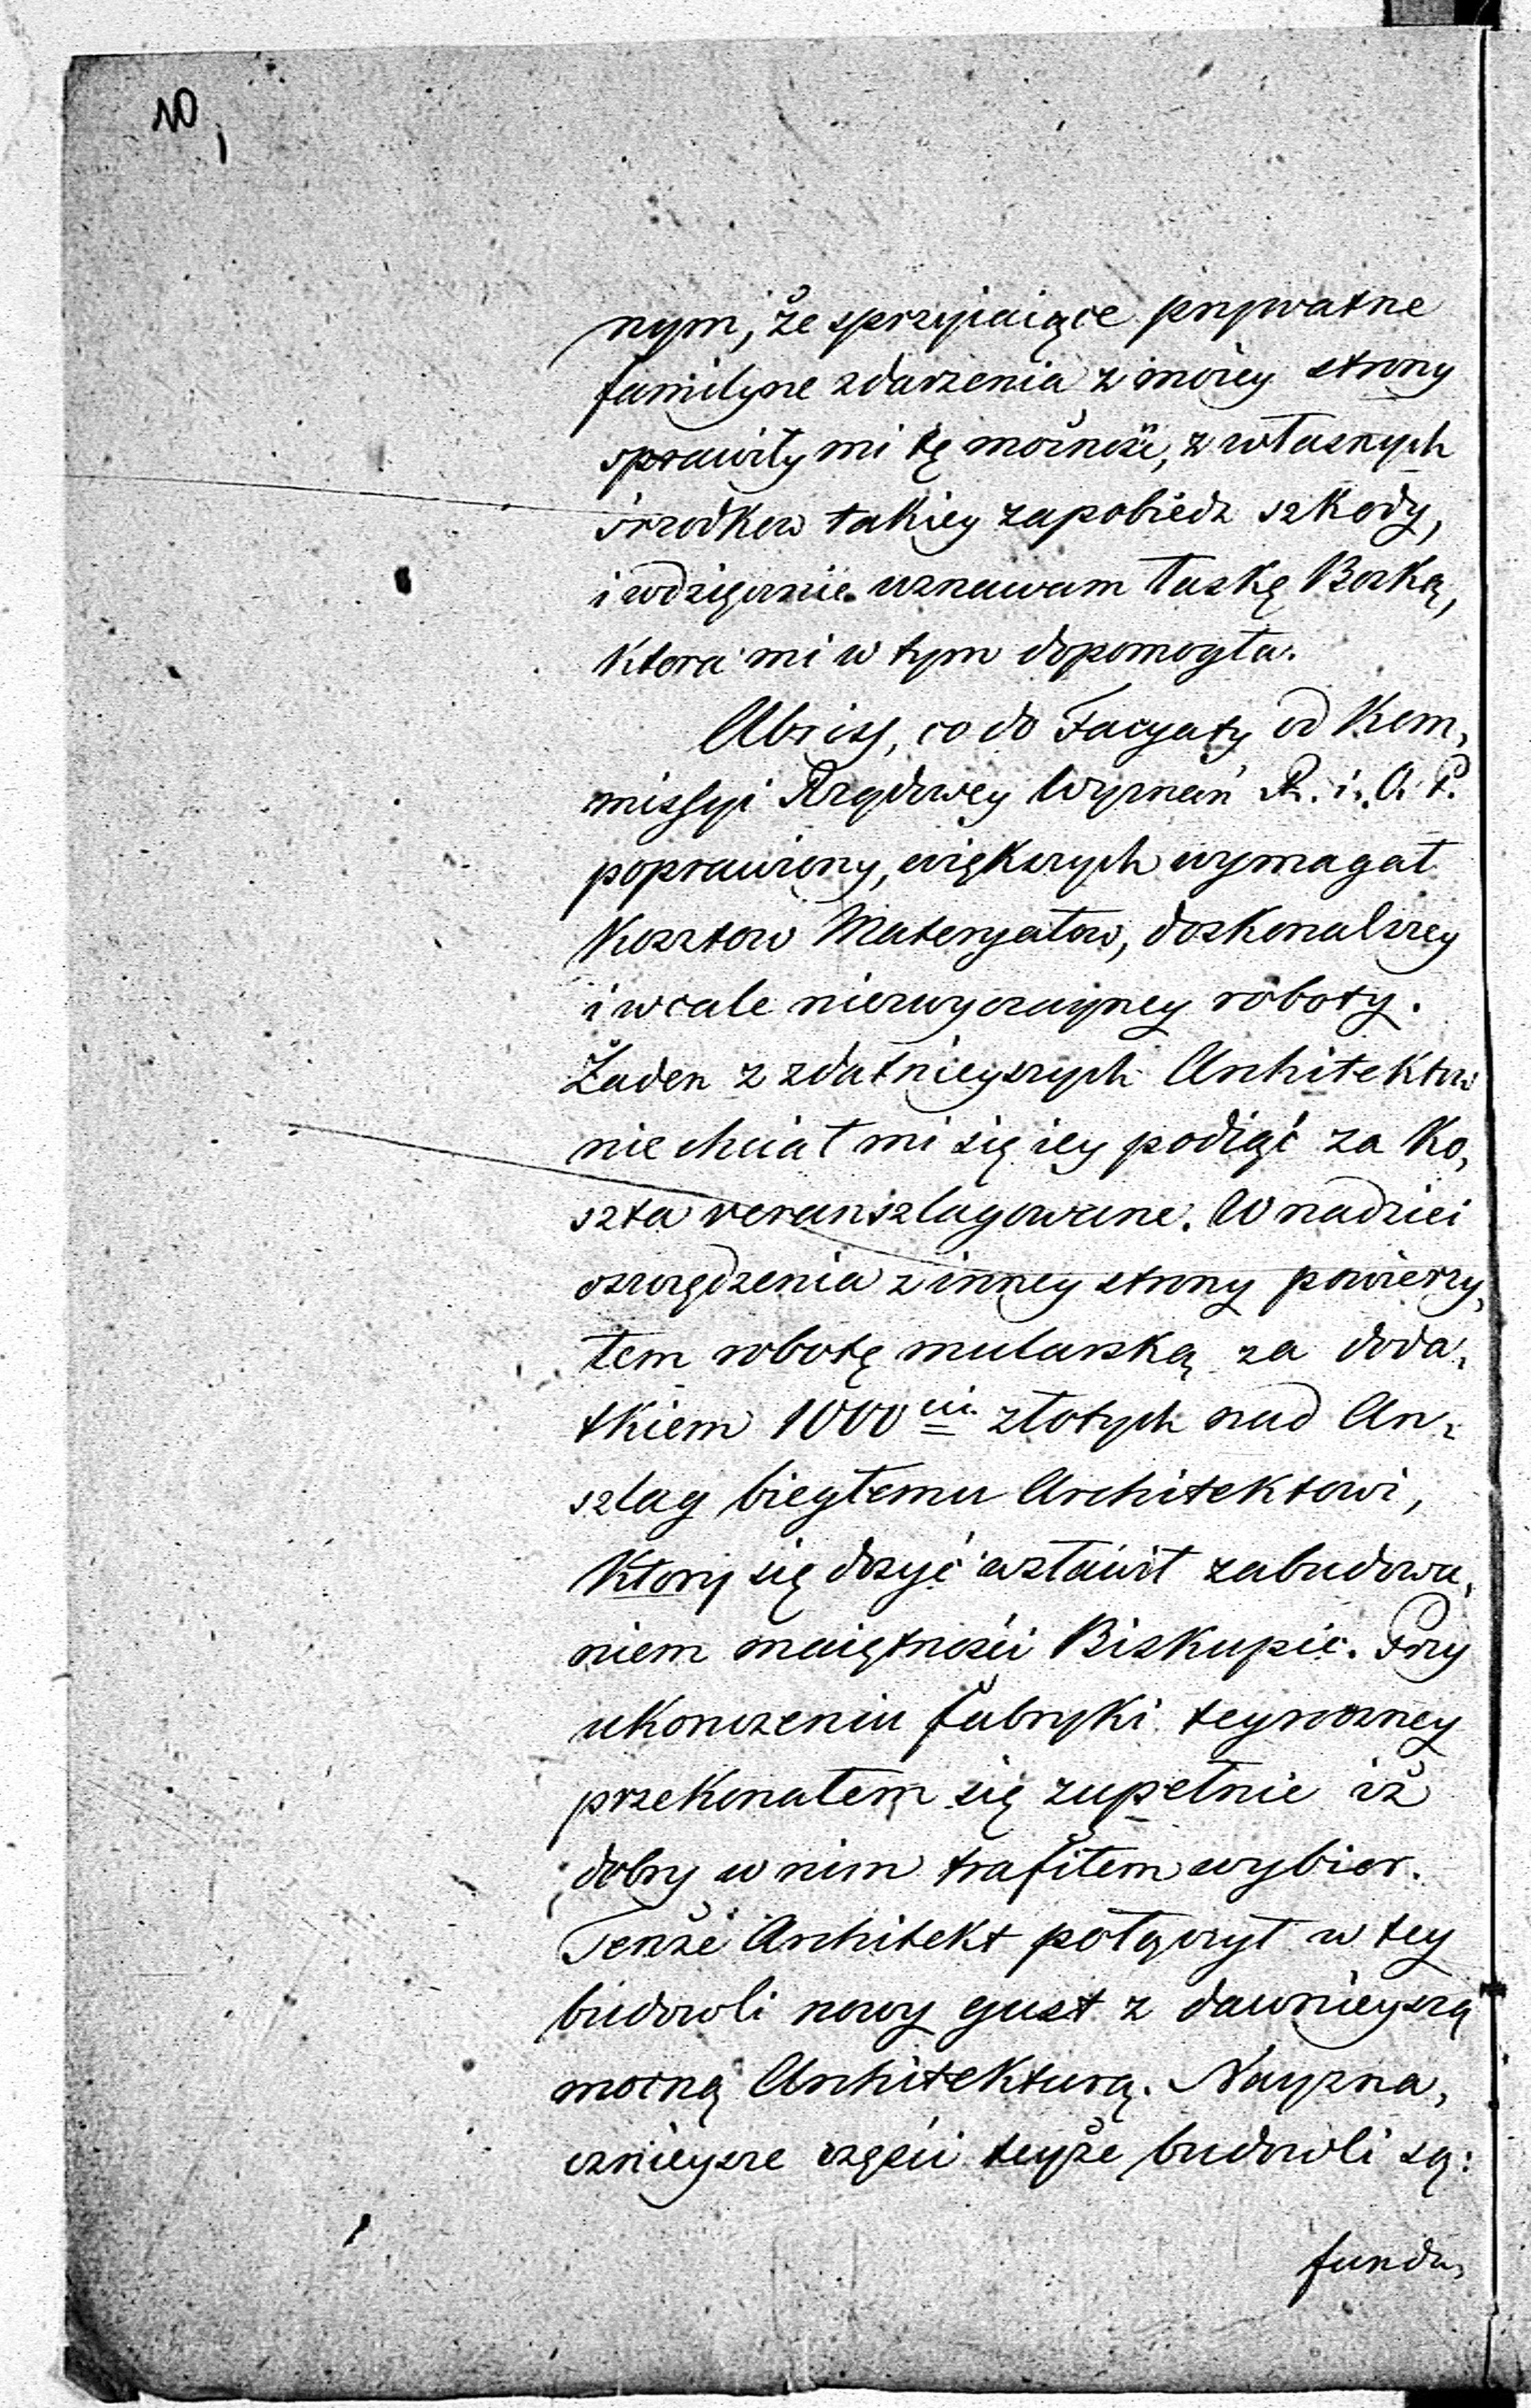 10,
nym, że sprzyiaiące prywatne
familyne zdarzenia z moiey strony
sprawiły mi tę możność, z własnych
śrzodkow takiey zapobiedz szkody,
i wdzięcznie uznawam łaskę Boską,
ktora mi w tym dopomogła.
Abriss, co do Facyaty od Kom,
missyi Rządowey Wyznań R. i. O. P.
poprawiony, większych wymagał
Kosztow Materyałow, doskonalszey
i wcale niezwyczayney roboty.
Żaden z zdatnieyszych Architektow
nie chciał mi się iey podiąć za Ko,
szta veranszlagowane. W nadziei
oszczędzenia z inney strony powierzy,
łem robotę mularską za doda,
tkiem 1000 złotych nad An,
szlag biegłemu Architektowi,
Ktory się dosyć wsławił zabudowa,
niem maiętności Biskupic. Przy
ukonczeniu fabryki teyroczney
przekonałem się zupełnie iż
dobry w nim trafiłem wybior.
Tenże Architekt połączył w tey
budowli nowy gust z dawnieyszą
mocną Architekturą. Nayzna,
cznieysze części teyże budowli są:
funda,